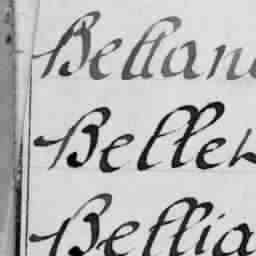 Bellan
Belle
Bellia